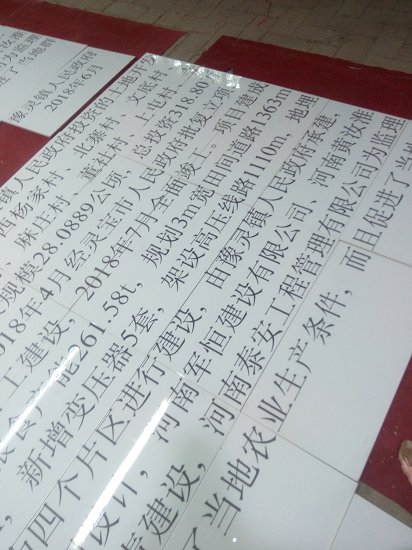 县人民政府投资的土地开发
西杨家村、北寨村、文底村、
、麻庄村、董社村、上屯村
规模28.0889公顷，总投资318.80
018年4月经灵宝市人民政府批复立项
工建设，2018年7月全面竣工。项目建成
粮食产能261.58t，规划3m宽田间道路1363m
，新增变压器5套，架设高压线路1110m，地埋
四个片区进行建设，由豫灵镇人民政府承建，
设计，河南军恒建设有限公司、河南黄汝淮
建设，河南泰安工程管理有限公司为监理
了当地农业生产条件，而且促进了当地
汝淮
为监理
进了当地群
豫灵镇人民政府
2018年6月